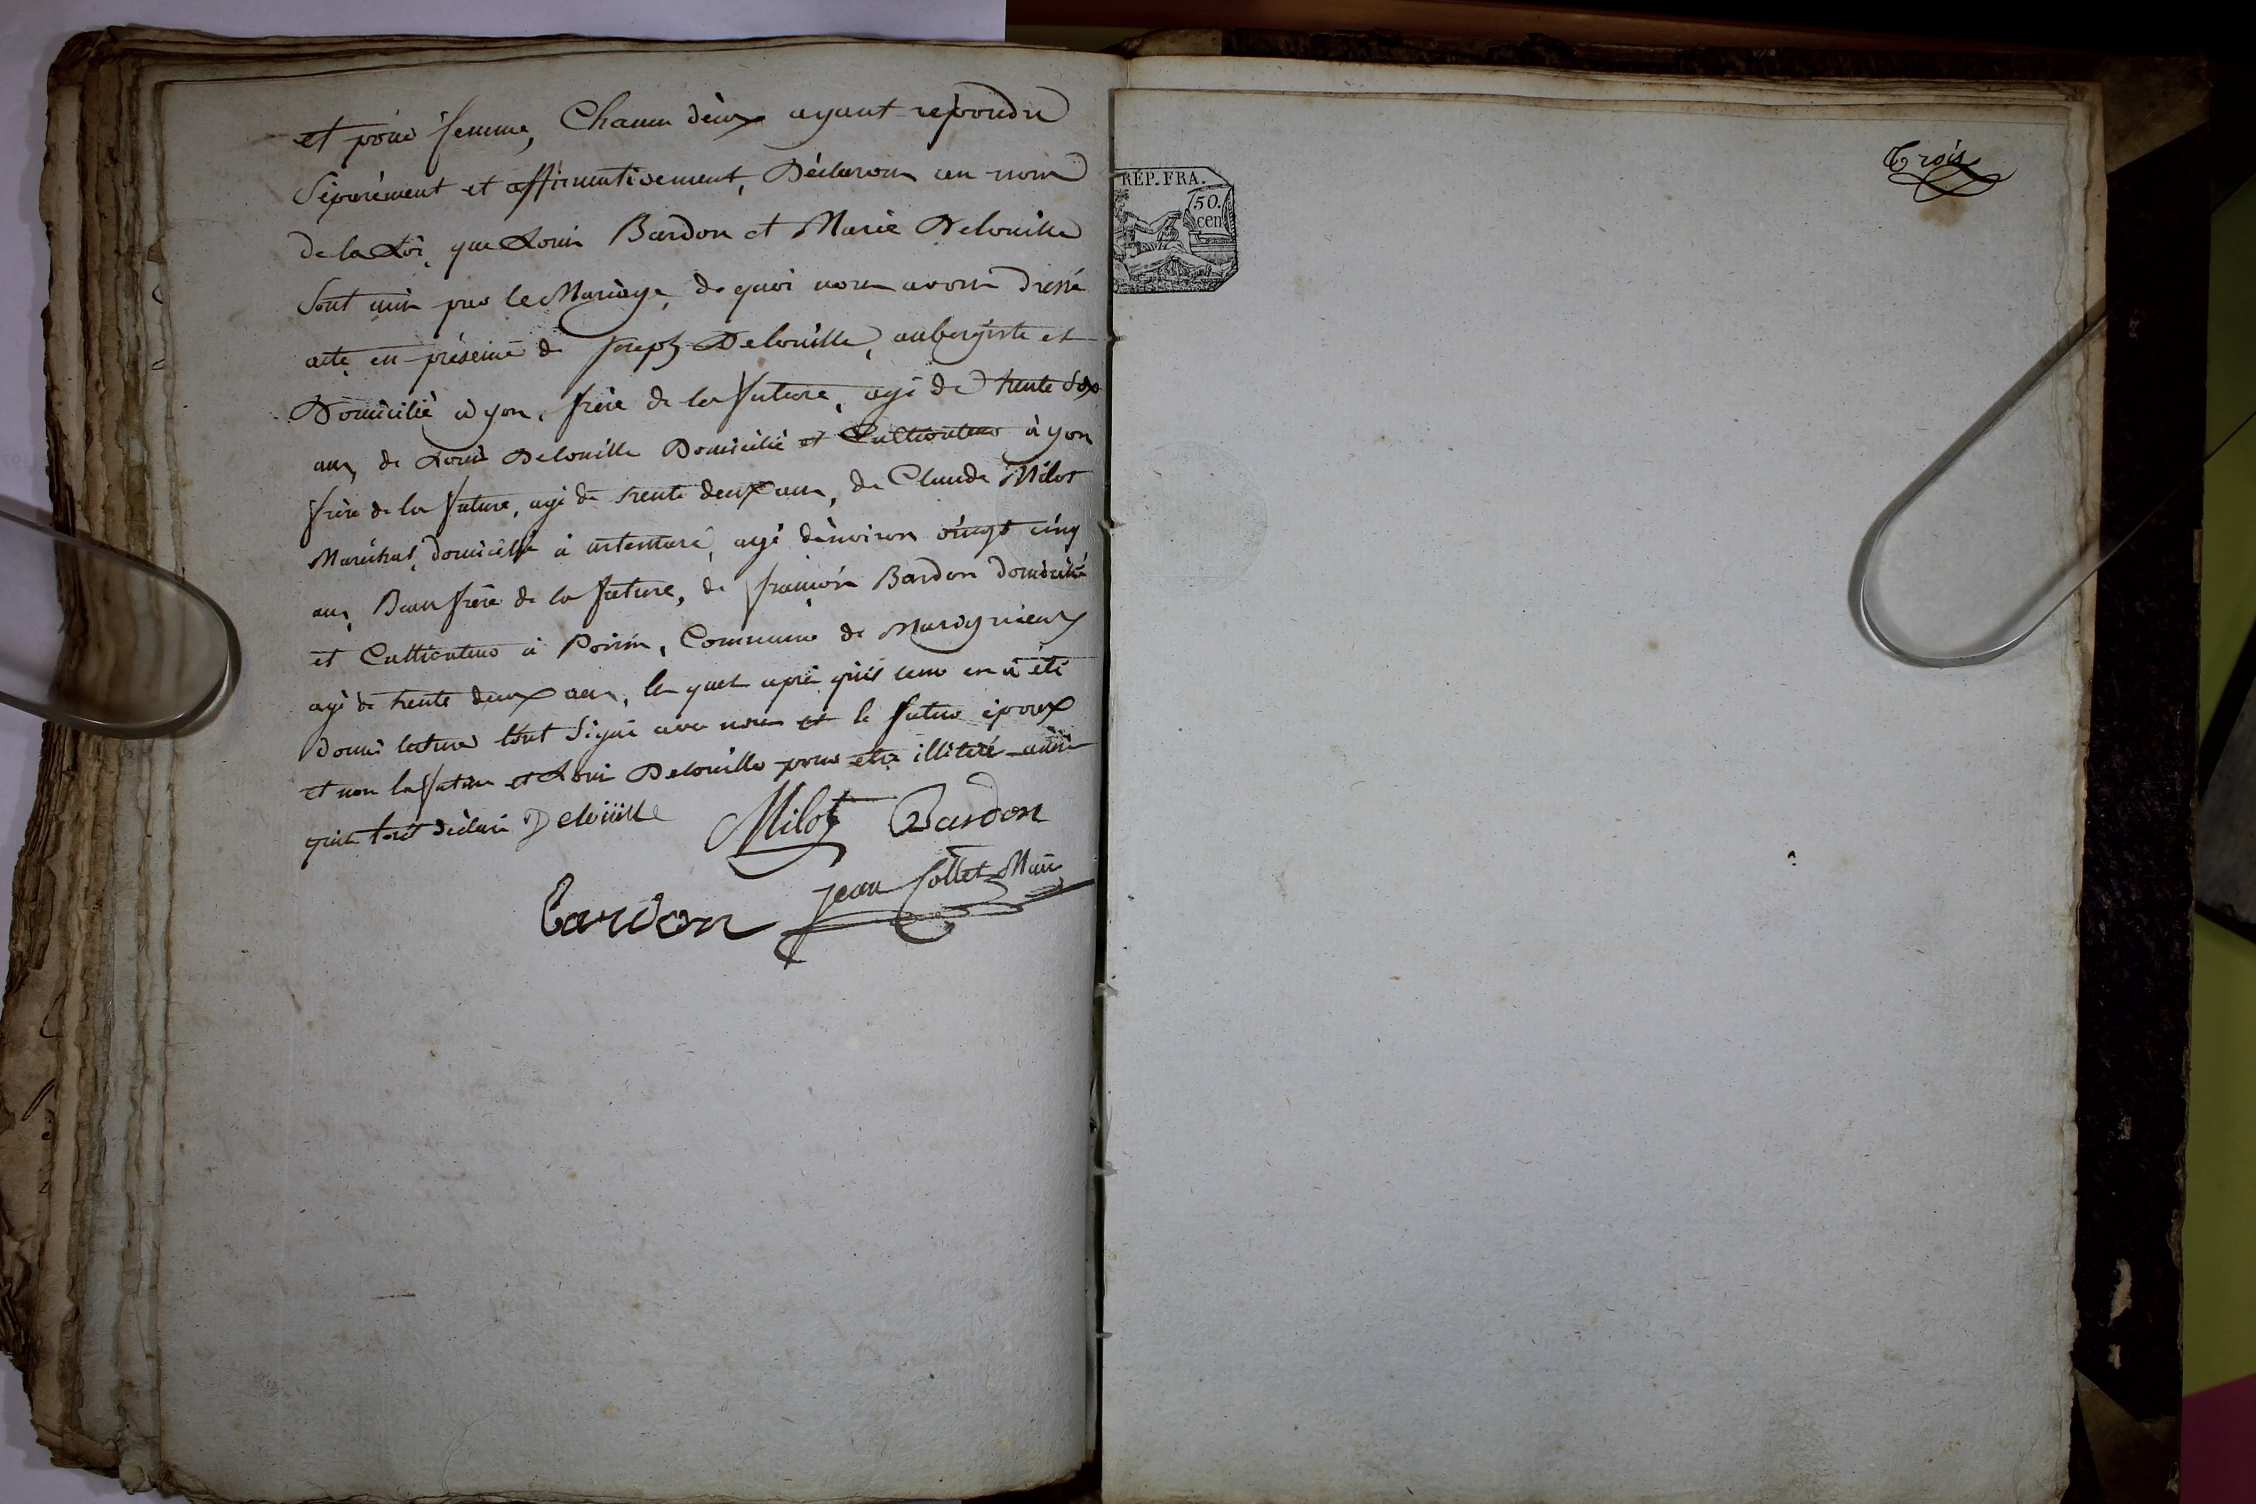 et pour femme, Chacun d'eux ayant repondu
Séparément et affirmativement, Déclarons au nom
de la Loi, que Louis Bardon et Marie Delouille
Sont unis par le Mariage, de quoi nous avons dressé
acte en présence de Joseph Delouille, aubergiste et
Domicilié à yon, frère de la future, agé de trente six
ans, de Louis Delouille Domicilié et Cultivateur à yon
frère de la future, agé de trente deux ans, de Claude Milot
Maréchal, domicilié à artemare, agé d'environ vingt cinq
ans, Beau frère de la future, de françois Bardon domicilié
et Cultivateur à Poisin, Commune de Marignieux
agé de trente deux ans, les quels après qu'il leur en a été
donné lecture l'ont Signé avec nous et le futur époux
et non la future et Louis Delouille pour etre illiteré ainsi
qu'ils l'ont déclaré Delouille
Milot Bardon
Bardon Jean Collet Maire
Trois
RÉP. FRA.
50.
cen